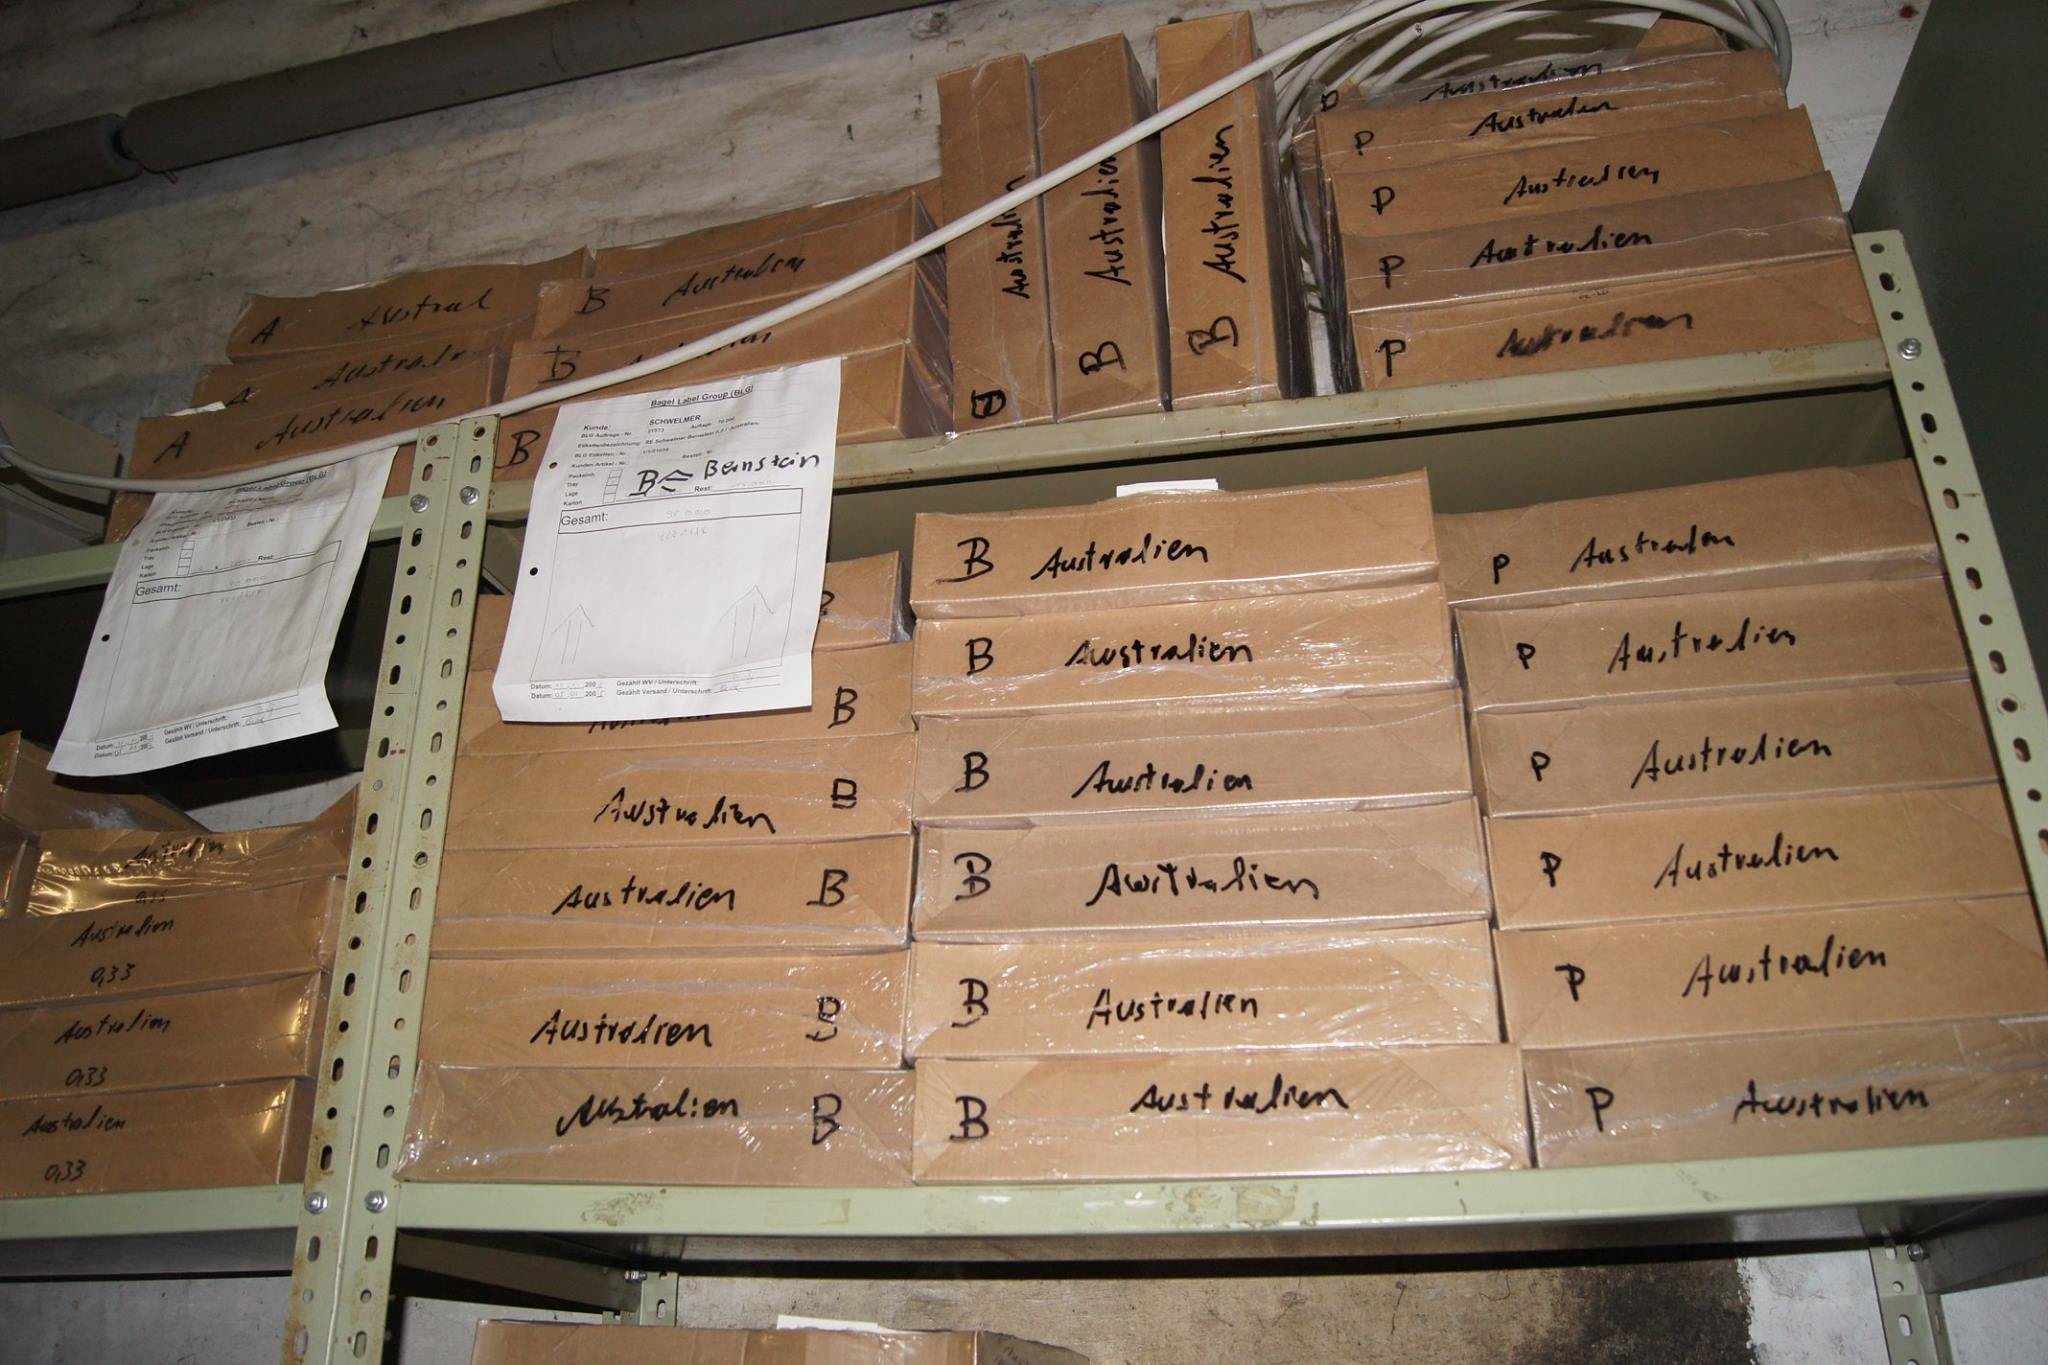 Australien
P Australien
P Australien
P Australien
P Australien
Australien
B Australien
B Australien
A Austral
A Australi
A Australien
B Australien
B
B
Bagel Label Group (BLG)
Kunde: SCHWELMER
BLG Auftrags - Nr. 31573 Auflage:
Etikettenbezeichnung: RE Schwelmer Bernstein
BLG Etiketten - Nr.
Kunden Artikel - Nr.
Packeinh.
Tray
Lage
Karton
Rest:
B ≙ Bernstein
Gesamt:
Datum: 200 Gezählt WV / Unterschrift:
Datum: 200 Gezählt Versand / Unterschrift:
Bagel Label Group (BLG)
Bestell - Nr.
Packeinh.
Tray
Lage
Karton
Rest:
Gesamt:
Datum: 200 Gezählt WV / Unterschrift:
Datum: 200 Gezählt Versand / Unterschrift:
B
Australien B
Australien B
Australien B
Australien B
B Australien
B Australien
B Australien
B Australien
B Australien
B Australien
P Australien
P Australien
P Australien
P Australien
P Australien
P Australien
Australien
0,33
Australien
0,33
Australien
0,33